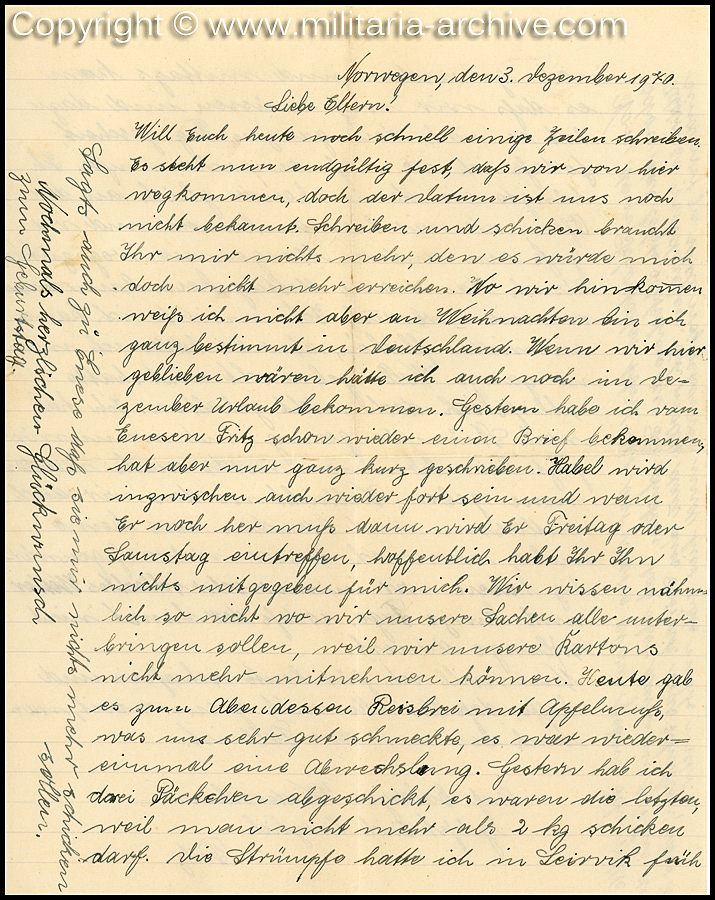 Copyright © www.militaria-archive.com
Norwegen, den 3. Dezember 1940.
Liebe Eltern!
Will Euch heute noch schnell einige Zeilen schreiben.
Es steht nun endgültig fest, daß wir von hier
wegkommen, doch der Datum ist uns noch
nicht bekannt. Schreiben und schicken braucht
Ihr mir nichts mehr, den es würde mich
doch nicht mehr erreichen. Wo wir hinkomen
weiß ich nicht aber an Weihnachten bin ich
ganz bestimmt in Deutschland. Wenn wir hier
geblieben wären hätte ich auch noch im De-
zember Urlaub bekommen. Gestern habe ich vom
Enesen Fritz schon wieder einen Brief bekommen,
hat aber nur ganz kurz geschrieben. Habel wird
inzwischen auch wieder fort sein und wenn
Er noch her muß dann wird Er Freitag oder
Samstag eintreffen, hoffentlich habt Ihr Ihn
nichts mitgegeben für mich. Wir wissen nähm-
lich so nicht wo wir unsere Sachen alle unter-
bringen sollen, weil wir unsere Kartons
nicht mehr mitnehmen können. Heute gab
es zum Abendessen Reisbrei mit Apfelmuß,
was uns sehr gut schmeckte, es war wieder=
einmal eine Abwechslung. Gestern hab ich
drei Päckchen abgeschickt, es waren die letzten,
weil man nicht mehr als 2 kg schicken
darf. Die Strümpfe hatte ich in Leirvik früh
Sagts auch zu Enese daß sie mir nichts mehr schicken
sollen.
Nochmals herzlichen Glückwunsch
zum Geburtstag.